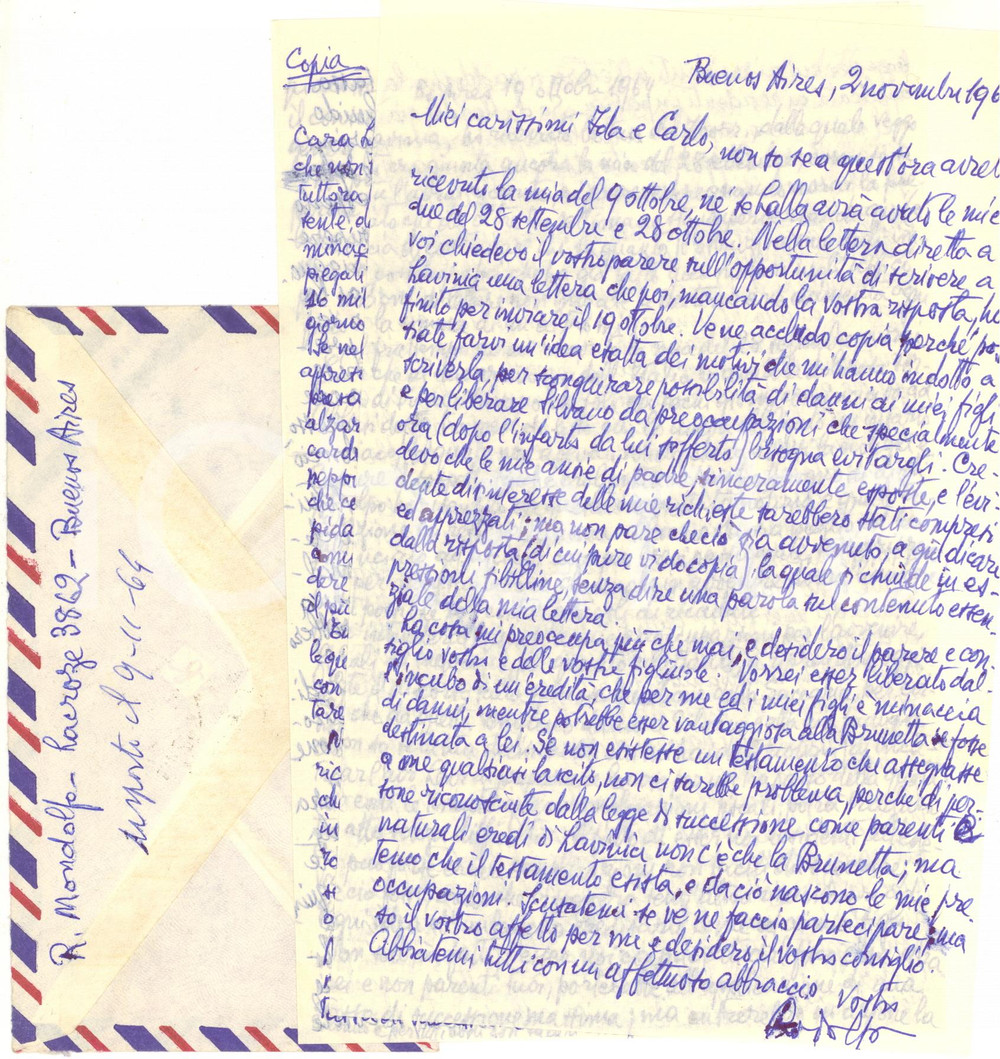 Copia
Buenos Aires, 2 novembre 196
Miei carissimi Ida e Carlo, non so se a quest'ora avret
ricevuto la mia del 9 ottobre, nè se Lalla avrà avuto le mie
due del 28 settembre e 28 ottobre. Nella lettera diretta a
voi chiedevo il vostro parere sull'opportunità di scrivere a
Lavinia una lettera che poi, mancando la vostra risposta, ho
finito per inviare il 19 ottobre. Ve ne accludo copia perché pos
siate farvi un'idea esatta dei motivi che mi hanno indotto a
scriverla, per scongiurare possibilità di danni ai miei figli
e per liberare Silvano da preoccupazioni che specialmente
ora (dopo l'infarto da lui sofferto) bisogna evitargli. Cre-
devo che le mie ansie di padre, sinceramente esposte, e l'evi-
dente disinteresse delle mie richieste sarebbero stati compresi
ed apprezzati; ma non pare che ciò sia avvenuto, a giudicare
dalla risposta (di cui pure vi do copia), la quale si chiude in es-
pressioni sibilline, senza dire una parola sul contenuto essen-
ziale della mia lettera.
La cosa mi preoccupa più che mai, e desidero il parere e con-
siglio vostro e delle vostre figliuole. Vorrei esser liberato dal-
l'incubo di un'eredità, che per me ed i miei figli è minaccia
di danni, mentre potrebbe esser vantaggiosa alla Brunetta se fosse
destinata a lei. Se non esistesse un testamento che assegnasse
a me qualsiasi lascito, non ci sarebbe problema, perché di per-
sone riconosciute dalla legge di successione come parenti e
naturali eredi di Lavinia non c'è che la Brunetta; ma
temo che il testamento esista, e da ciò nascono le mie pre-
occupazioni. Scusatemi se ve ne faccio partecipare; ma
so il vostro affetto per me e desidero il vostro consiglio.
Abbiatemi tutti con un affettuoso abbraccio
vostro
Cara
che non
tuttora
sente, a
piegati
16 mil
giorno
se nel
presa
alzar
cardi
neppu
che ce
pida
dere
le que
con
tare
ric
ch
in
R. Mondolfo - Lacroze 3862 - Buenos Aires
risposto il 9-11-64